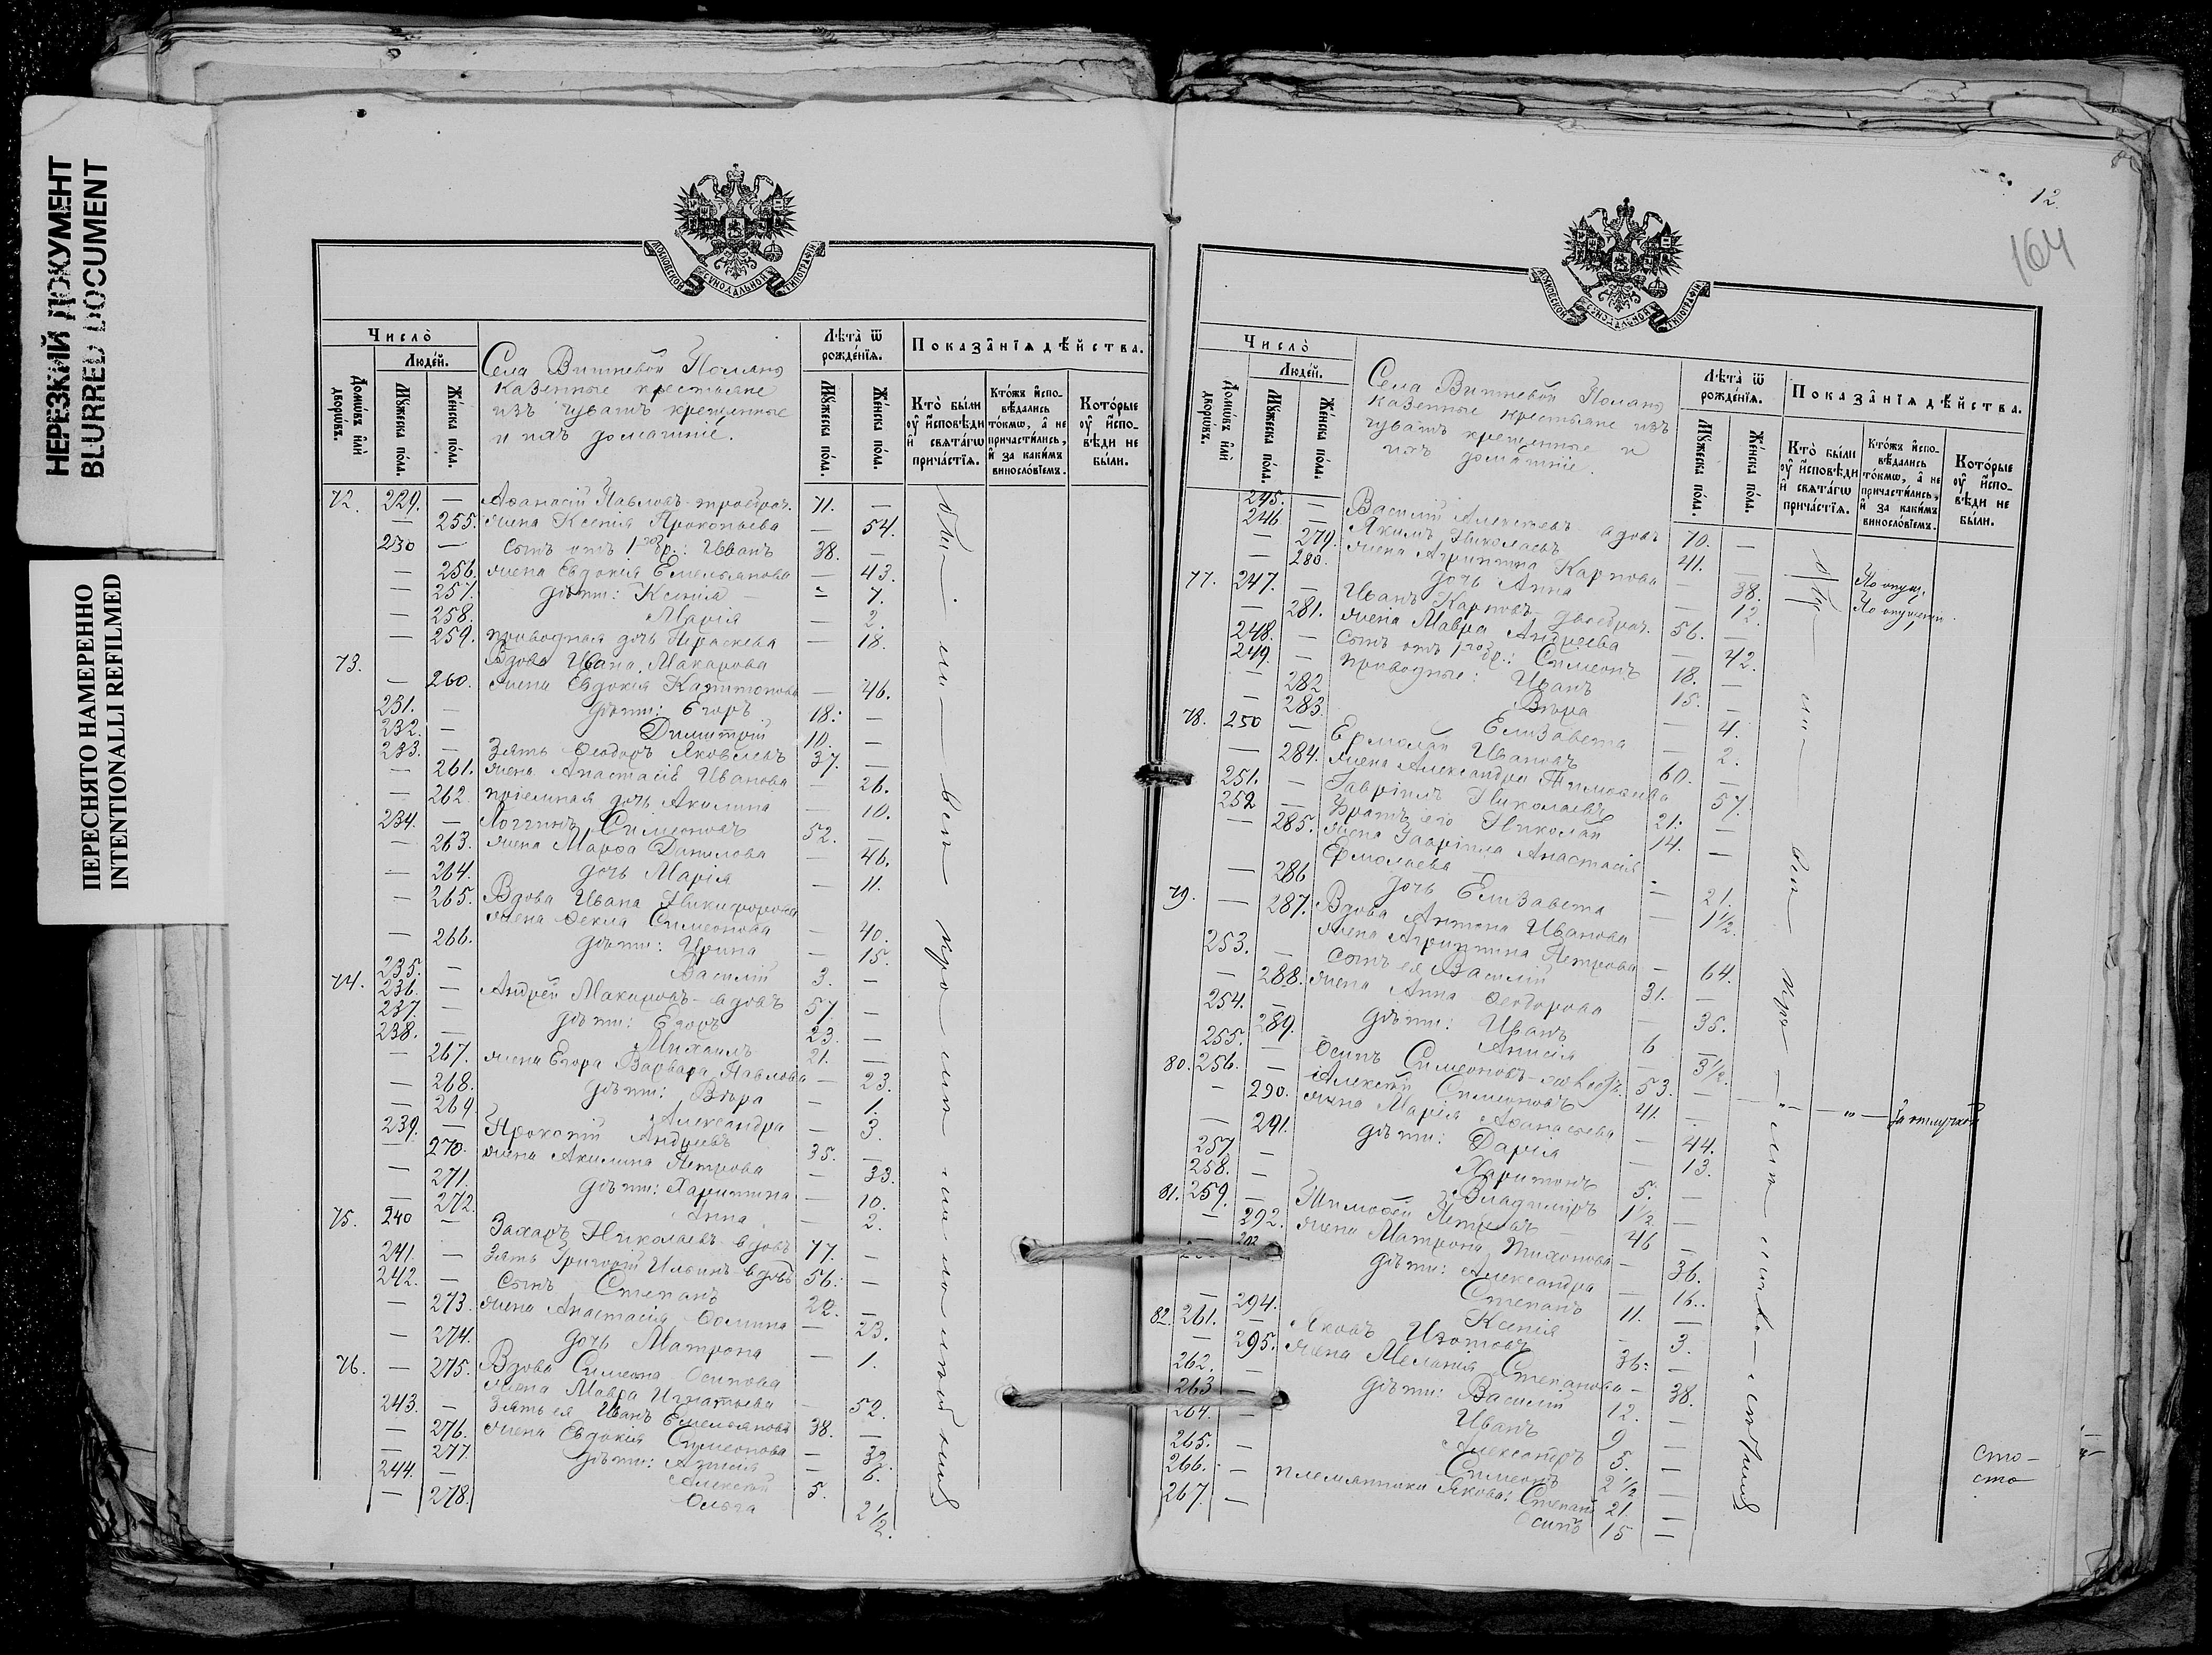 НЕРЕЗКИЙ ДОКУМЕНТ
BLURRED DOCUMENT
ПЕРЕСНЯТО НАМЕРЕННО
INTENTIONALLI REFILMED
МОСКОВСКОЙ СѴНОДАЛЬНОЙ ТИПОГРАФІИ
Число̀
Домѡвъ и҆лѝ дворѡвъ.
Люде́й.
Мꙋ́жеска по́ла.
Же́нска по́ла.
Села Вишневой Поляны
казенные крестьяне
изъ чувашъ крещенные
и ихъ домашніе.
Лѣта̀ ѿ рожде́нїѧ.
Мꙋ́жеска по́ла.
Же́нска по́ла.
Показа̑нїѧ дѣ́йства.
Кто̀ бы́ли ᲂу҆ и҆сповѣ́ди и҆ свѧта́гѡ прича́стїѧ.
Кто́жъ и҆сповѣ́дались то́кмѡ, а҆ не причасти́лись, и҆ за каки́мъ винослѡ́вїемъ.
Кото́рые ᲂу҆ и҆сповѣ́ди не бы́ли.
72. 229. — Аѳанасій Павловъ троебрач. 71. —
— 255. жена Ксенія Прокопьева — 54.
230 — Сынъ отъ 1-го бр.: Иванъ 38. —
— 256. жена Евдокія Емельянова — 43.
— 257. дѣти: Ксенія — 7.
— 258. Марія — 2.
— 259. приводная дочь Параскева — 18.
73. Вдова Ивана Макарова
— 260. жена Евдокія Капитонова — 46.
231. — дѣти: Егоръ 18. —
232. — Димитрій 10. —
233. — Зять Ѳеодоръ Яковлевъ 37. —
— 261. жена Анастасія Иванова — 26.
— 262. пріемная дочь Акилина — 10.
234. — Логгинъ Симеоновъ 52. —
— 263. жена Марѳа Данилова — 46.
— 264. дочь Марія — 11.
— 265. Вдова Ивана Никифорова
жена Ѳекла Симеонова — 40.
— 266. дѣти: Ирина — 15.
235. — Василій 3. —
74. 236. — Андрей Макаровъ - вдовъ 57. —
237. — дѣти: Егоръ 23. —
238. — Михаилъ 21. —
— 267. жена Егора Варвара Павлова — 23.
— 268. дѣти: Вѣра — 1.
— 269. Александра — 3.
239. — Прокопій Андреевъ 35. —
— 270. жена Акилина Петрова — 33.
— 271. дѣти: Харитина — 10.
— 272. Анна — 2.
75. 240 — Захаръ Николаевъ вдовъ 77. —
241. — Зять Григорій Ильинъ вдовъ 56. —
242. — Сынъ Степанъ 22. —
— 273. жена Анастасія Ѳомина — 23.
— 274. дочь Матрона — 1.
76. — 275. Вдова Симеона Осипова
жена Мавра Игнатьева — 52.
243. — Зять ея Иванъ Емельяновъ 38. —
— 276. жена Евдокія Симеонова — 32.
— 277. дѣти: — 6.
244. — Алексѣй 5. —
— 278. Ольга 2 1/2.
12.
164
МОСКОВСКОЙ СѴНОДАЛЬНОЙ ТИПОГРАФІИ
Число̀
Домѡвъ и҆лѝ дворѡвъ.
Люде́й.
Мꙋ́жеска по́ла.
Же́нска по́ла.
Села Вишневой Поляны
казенные крестьяне изъ
чувашъ крещенные и
ихъ домашніе.
Лѣта̀ ѿ рожде́нїѧ.
Мꙋ́жеска по́ла.
Же́нска по́ла.
Показа̑нїѧ дѣ́йства.
Кто̀ бы́ли ᲂу҆ и҆сповѣ́ди и҆ свѧта́гѡ прича́стїѧ.
Кто́жъ и҆сповѣ́дались то́кмѡ, а҆ не причасти́лись, и҆ за каки́мъ винослѡ́вїемъ.
Кото́рые ᲂу҆ и҆сповѣ́ди не бы́ли.
245. — Василій Алексѣевъ вдовъ 70. —
246 — Якимъ Николаевъ 41. —
— 279. жена Агрипина Карпова — 38.
— 280. дочь Анна — 12.
77. 247. — Иванъ Карповъ - двоебрач. 56. —
— 281. жена Мавра Андреева — 42.
248. — Сынъ отъ 1-го бр.: Симеонъ 18. —
249. — приводные: Иванъ 15. —
— 282 Вѣра — 4.
— 283. Елизавета — 2.
78. 250 — Ермолай Ивановъ 60. —
— 284. жена Александра Тимоѳеева 57.
251. — Гавріилъ Николаевъ 21. —
252 — Братъ его Николай 14. —
— 285. жена Гавріила Анастасія
Ермолаева — 21.
— 286 дочь Елизавета — 1 1/2.
79. — 287. Вдова Антона Иванова
жена Агрипина Петрова — 64.
253. — сынъ ея Василій 31. —
— 288. жена Анна Ѳеодорова — 35.
254. — дѣти: Иванъ 6 —
289. Анисія — 3 1/2.
255. — Осипъ Симеоновъ 53. —
80. 256. — Алексѣй Симеоновъ 41. —
— 290. жена Марія Аѳанасьева — 44.
— 291. дѣти: Дарія — 13.
257. — Харитонъ 5. —
258. — Владиміръ 1 1/2. —
81. 259. — Тимоѳей Петровъ 46 —
— 292. жена Матрона Тихонова — 36.
дѣти: Александра — 16.
Степанъ 11. —
— 294. Ксенія — 3.
82. 261. — Яковъ Изотовъ 36. —
— 295. жена Меланія Степанова — 38.
262. — дѣти: Василій 12. —
263 — Иванъ 9 —
264. — Александръ 5. —
265. — Симеонъ 2 1/2 —
266. — племянники Якова: Степанъ 21. —
267. — Осипъ 15 —
По опущ.
По опущенію.
За отлучкой